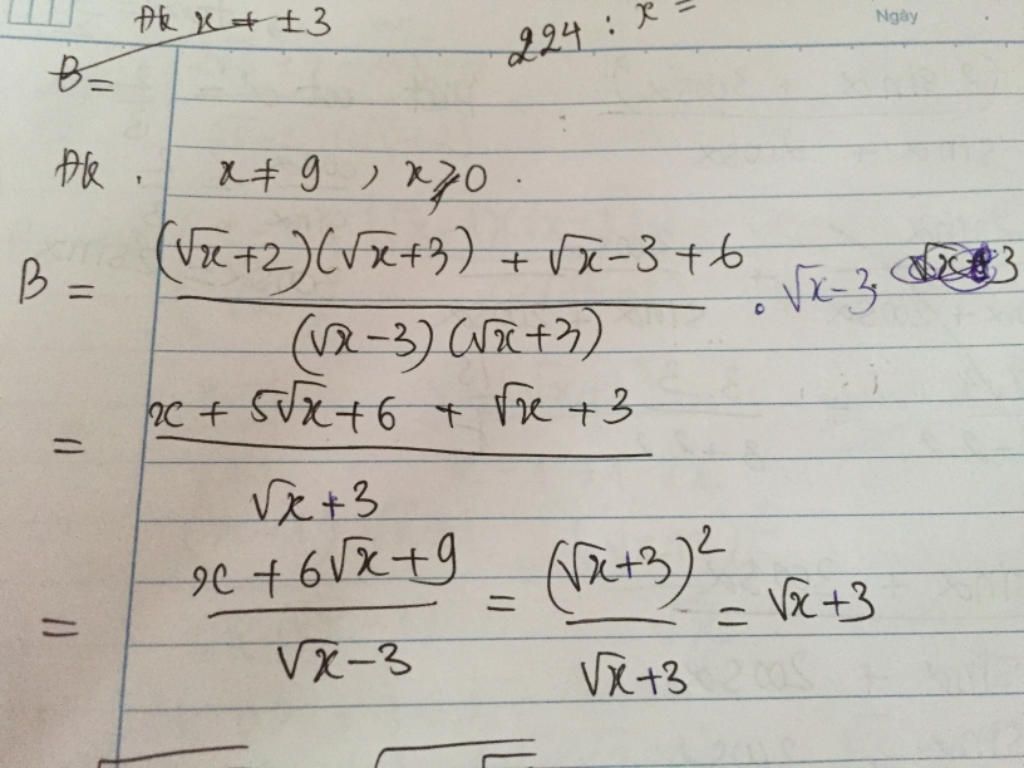 Đk x ≠ ±3
224 : x =
Ngày
B =
Đk . x ≠ 9 , x ⩾ 0 .
B = ((√x+2)(√x+3) + √x-3+6) / ((√x-3)(√x+3)) . √x-3
= (x + 5√x+6 + √x +3) / (√x+3)
= (x + 6√x+9) / (√x-3) = (√x+3)² / (√x+3) = √x+3